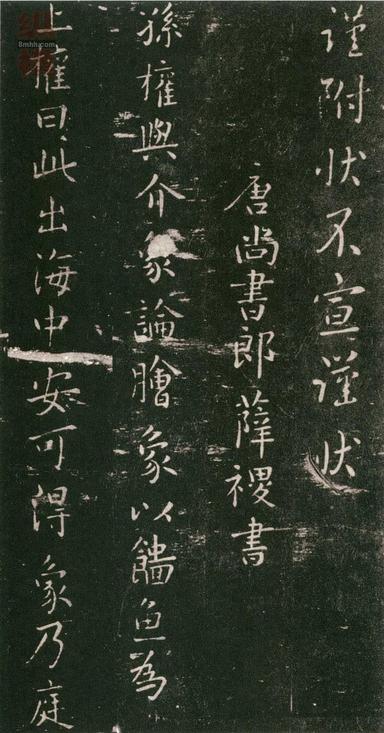 谨附状不宣谨状
唐尚書郎薛稷書
孫權與介象論膾象以鯔魚為
上權曰此出海中安可得象乃庭
8mhh.com